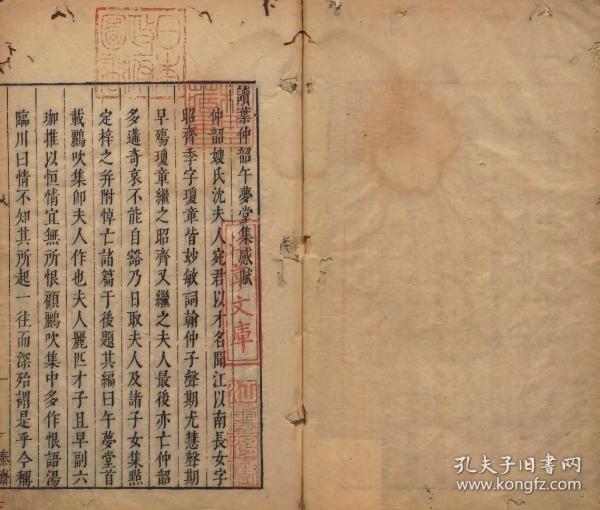 讀葉仲韶午夢堂集感賦
仲韶嫂氏沈夫人宛君以才名聞江以南長女字
昭齊季字瓊章皆妙敏詞翰仲子聲期尤慧聲期
早殤瓊章繼之昭齊又繼之夫人最後亦亡仲韶
多遘奇哀不能自谿乃日取夫人及諸子女集點
定梓之并附悼亡諸篇于後題其編曰午夢堂首
載鸝吹集即夫人作也夫人麗匹才子且早副六
珈推以恒情宜無所恨顧鸝吹集中多作恨語湯
臨川曰情不知其所起一往而深殆謂是乎今稱
秦齋
文庫
孔夫子旧书网
www.kongfz.com